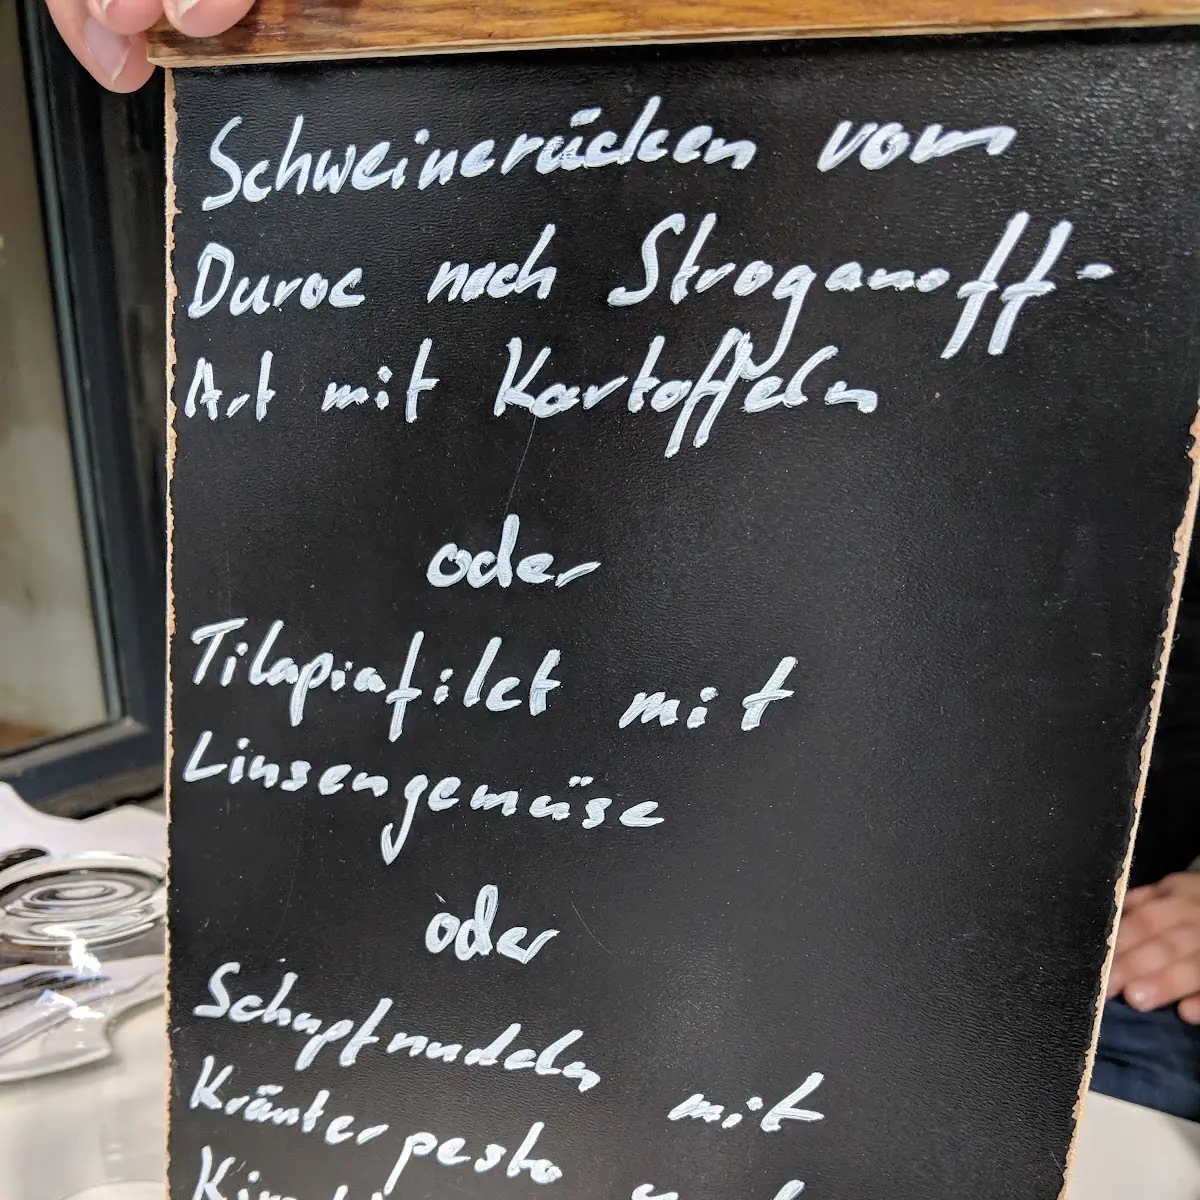 Schweinerücken vom
Duroc nach Stroganoff-
Art mit Kartoffeln
oder
Tilapiafilet mit
Linsengemüse
oder
Schupfnudeln mit
Kräuterpesto